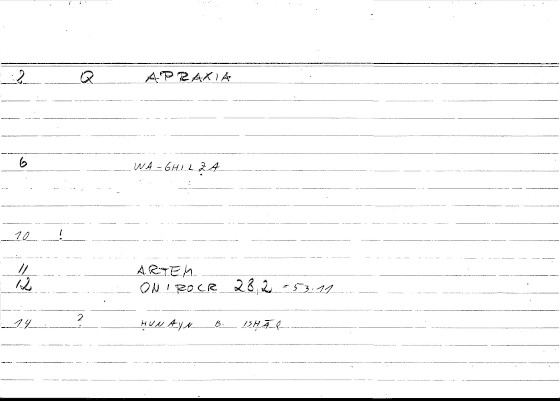 2 Q APRAXIA
6 WA-GHILẒA
10 !
11 ARTEM
12 ONIROCR 28,2 - 53.11
14 ? ḤUNAYN B. ISḤĀQ